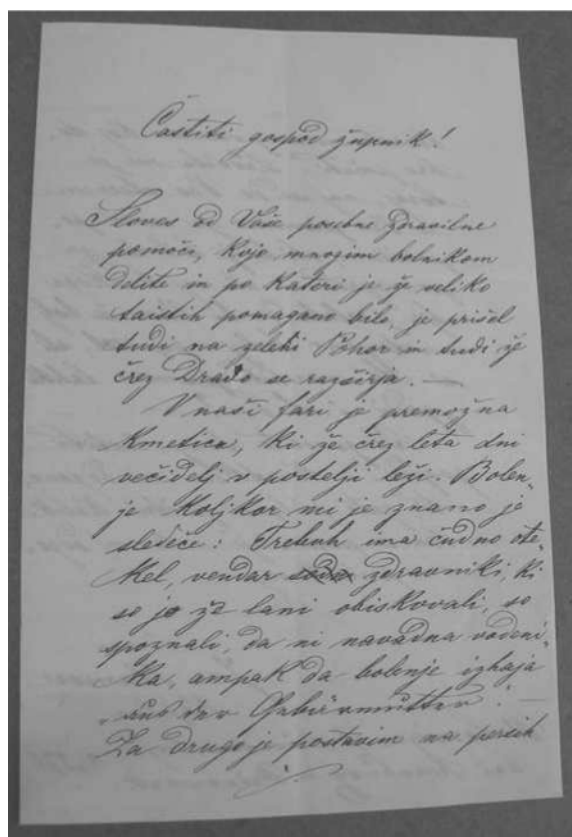 Častiti gospod župnik!
Sloves od Vaše posebne zdravilne
pomoči, kojo mnogim bolnikom
delite in po kateri je že veliko
taistih pomagano bilo, je prišel
tudi na zeleni Pohor in tudi že
črez Dravo se razširja. —
V naši fari je premožna
kmetica, ki že črez leta dni
večidelj v postelji leži. Bolen-
je koljkor mi je znano je
sledeče: Trebuh ima čudno ote-
kel, vendar zdravniki, ki
so jo že lani obiskovali, so
spoznali, da ni navadna vodeni-
ka, ampak da bolenje izhaja
„aus der Gebärmutter". —
Za drugo je postavim na persih